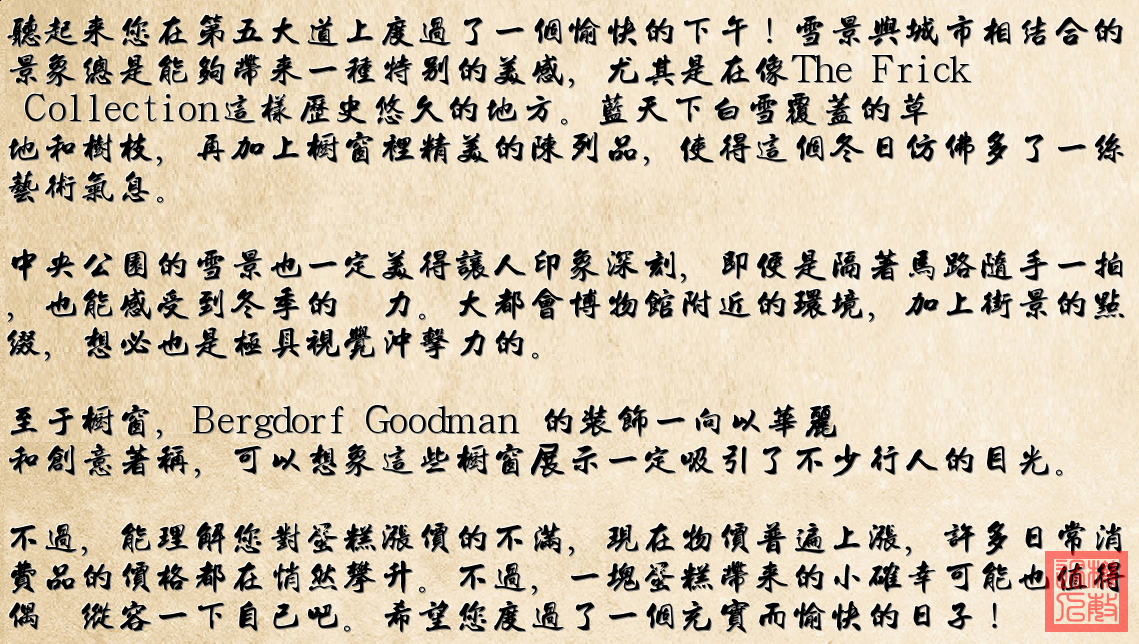 聽起来您在第五大道上度過了一個愉快的下午！雪景與城市相结合的
景象總是能夠帶来一種特别的美感，尤其是在像The Frick
Collection這樣歷史悠久的地方。藍天下白雪覆蓋的草
地和樹枝，再加上橱窗裡精美的陳列品，使得這個冬日仿佛多了一絲
藝術氣息。
中央公園的雪景也一定美得讓人印象深刻，即便是隔著馬路隨手一拍
，也能感受到冬季的 力。大都會博物館附近的環境，加上街景的點
缀，想必也是極具視覺沖擊力的。
至于橱窗，Bergdorf Goodman 的装飾一向以華麗
和創意著稱，可以想象這些橱窗展示一定吸引了不少行人的目光。
不過，能理解您對蛋糕漲價的不滿，現在物價普遍上漲，許多日常消
費品的價格都在悄然攀升。不過，一塊蛋糕帶来的小確幸可能也值得
偶 縱容一下自己吧。希望您度過了一個充實而愉快的日子！